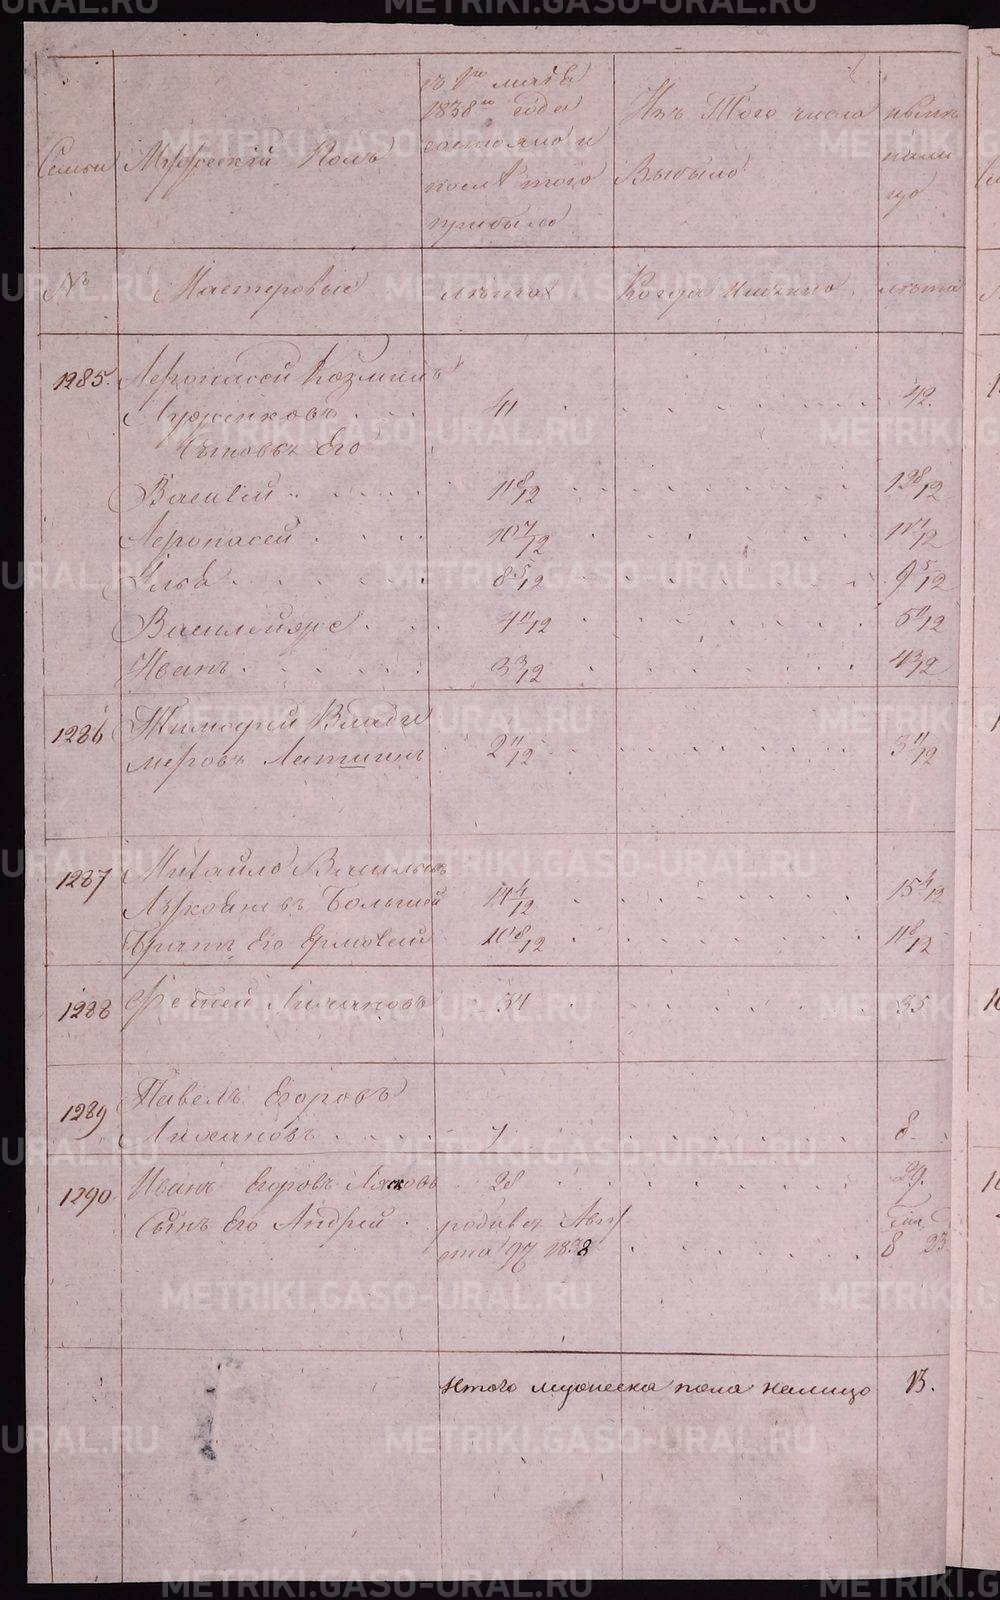 Семьи
Мужескій Полъ
къ 1му маія
1838го года
состояло и
послѣ того
прибыло
Изъ Того числа
Выбыло
нынѣ
нали
цо
№
Мастеровые
лѣта
Когда имянно
лѣта
1285. Аѳонасей Козминъ
Лужинковъ 41 42.
Сыновья Его
Василій 11 8/12 12 8/12
Аѳонасей 10 7/12 11 7/12
Илья 8 5/12 9 5/12
Василей же 4 11/12 5 11/12
Иванъ 3 3/12 4 3/12
1286 Тимофей Влади
меровъ Латишнъ 2 11/12 3 11/12
1287 Михайло Васильевъ
Большой 14 4/12 15 4/12
Братъ Его Ермолей 10 8/12 11 8/12
1288 Фотей Лихановъ 34 35
1289 Павелъ Егоровъ
Лихановъ 7 8
1290 Иванъ Егоровъ Лясковъ 28 29.
Сынъ Его Андрей родився Авгу
ста 17 1838 8 23
Итого мужеска пола налицо 13.
METRIKI.GASO-URAL.RU